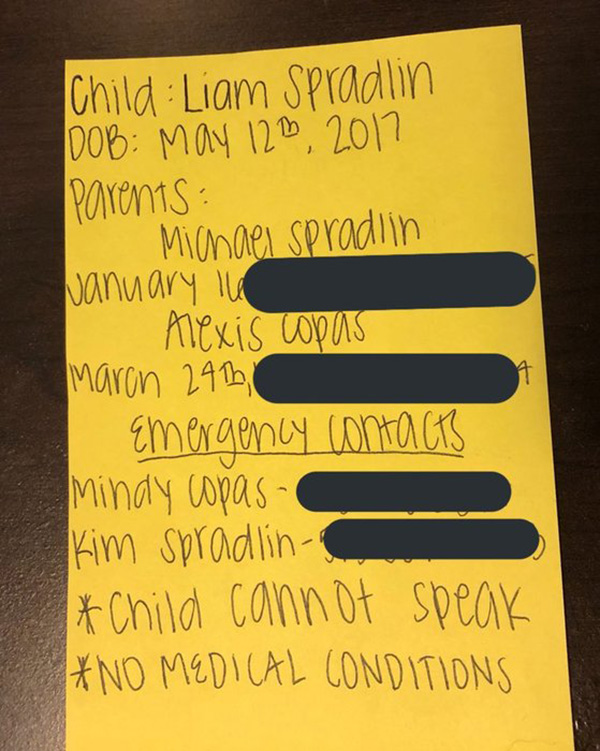 Child: Liam Spradlin
DOB: May 12th, 2017
Parents:
Michael Spradlin
January 16
Alexis Copas
March 24th,
Emergency Contacts
Mindy Copas -
Kim Spradlin -
*Child cannot speak
*NO MEDICAL CONDITIONS